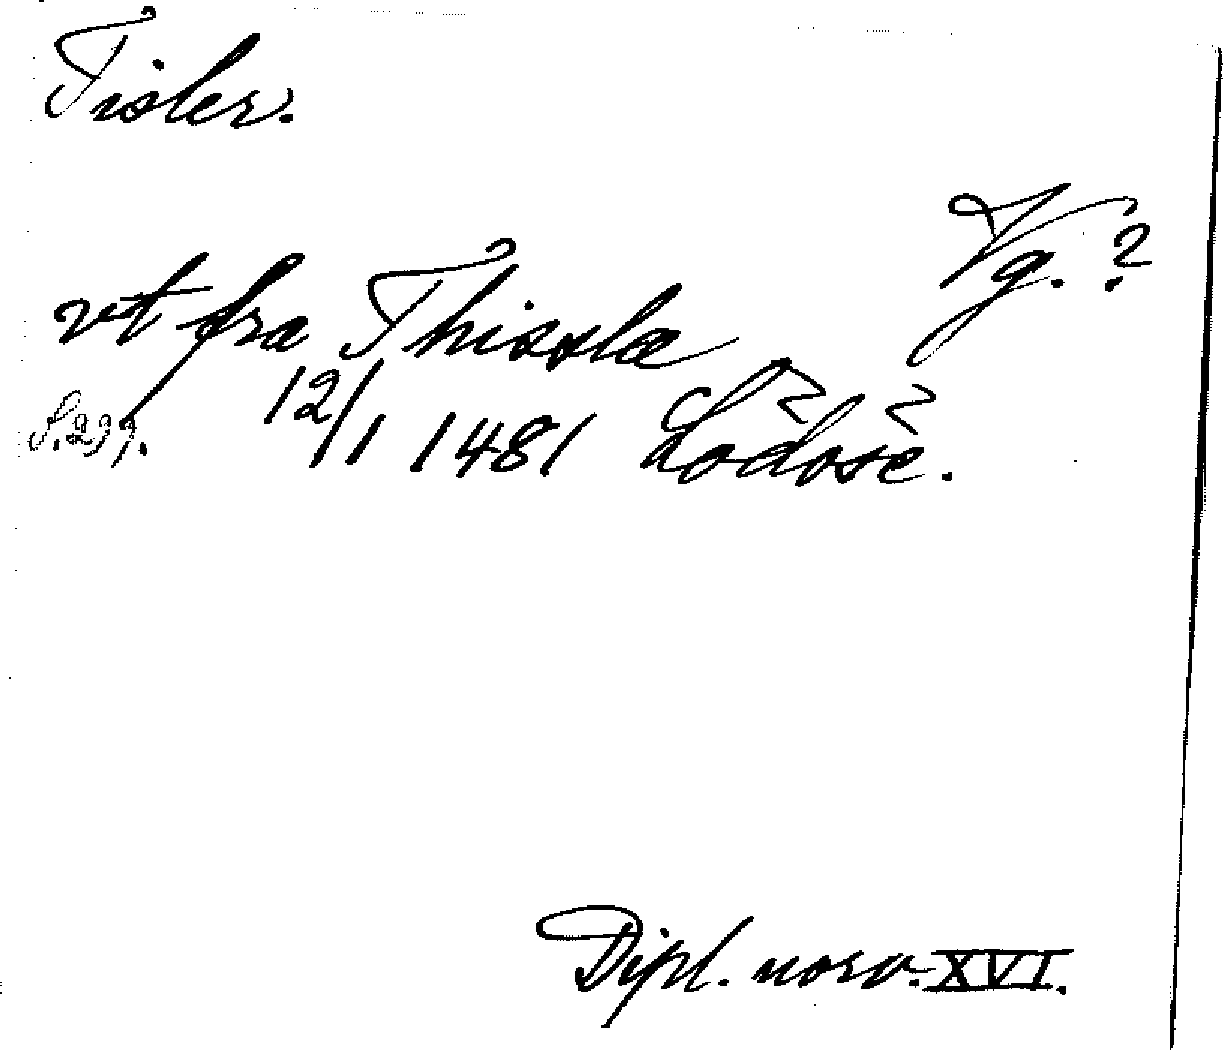 Tisler.
Vg. ?
vt fra Thisslæ
S. 299. 12/1 1481 Lödöse.
Dipl. norv. XVI.